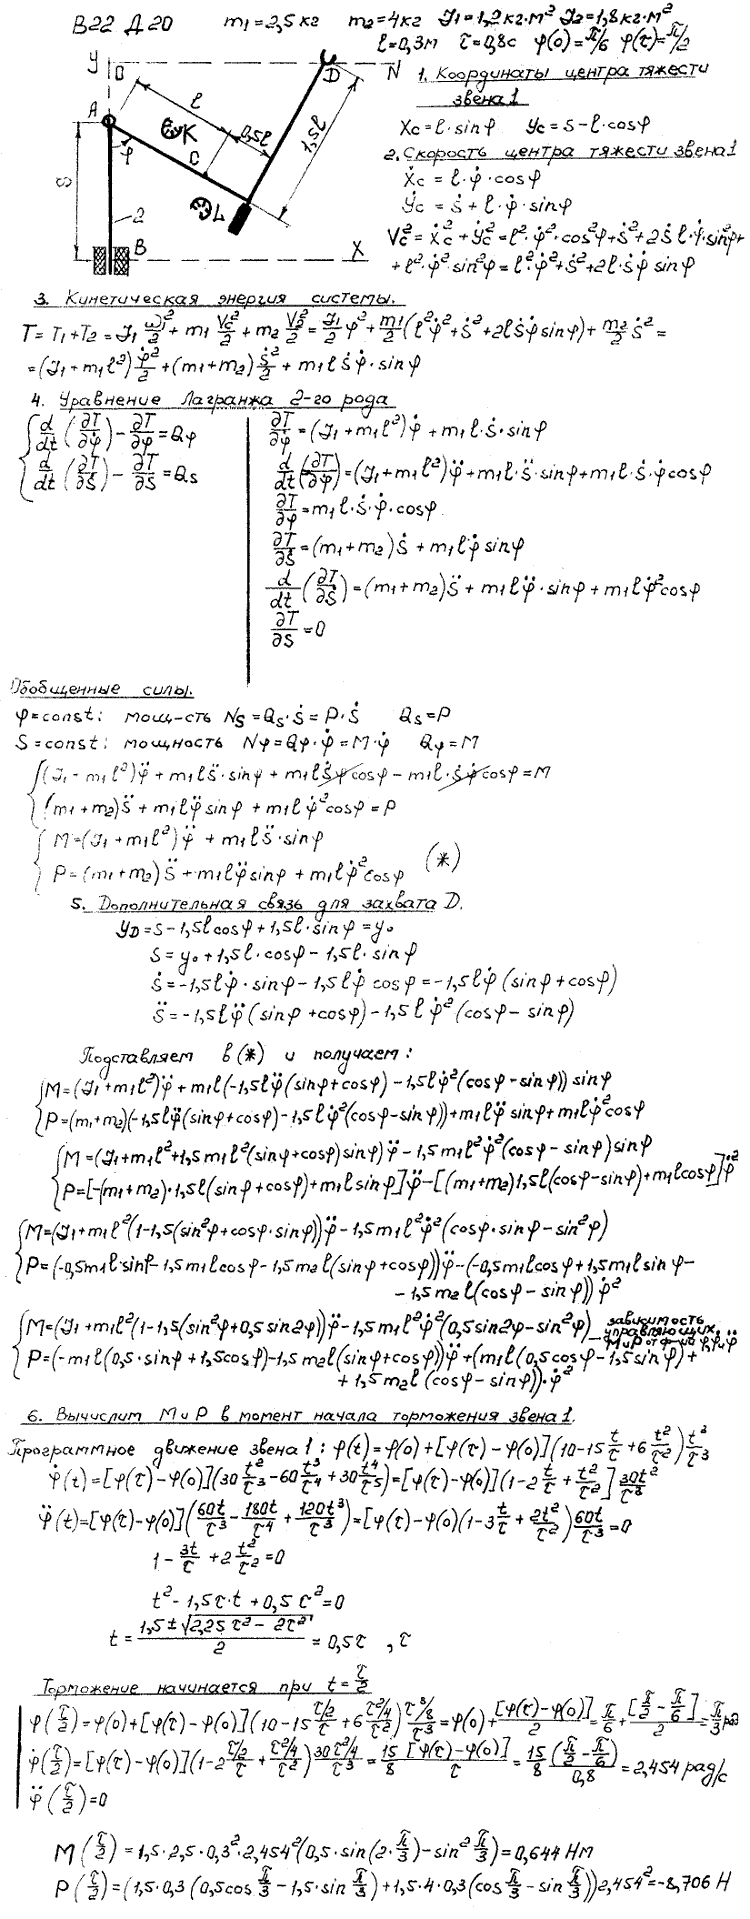 В22 Д20 m₁=2,5кг m₂=4кг J₁=1,2кг·м² J₂=1,8кг·м²
l=0,3м τ=0,8с φ(0)=π/6 φ(τ)=π/2
У О D N
A l K 0,5l 1,5l
φ C S L
2 B X
1. Координаты центра тяжести
звена 1
Xc=l·sinφ Yc=S-l·cosφ
2. Скорость центра тяжести звена 1
Ẋc = l·φ̇·cosφ
Ẏc = Ṡ + l·φ̇·sinφ
Vc² = Ẋc² + Ẏc² = l²·φ̇²·cos²φ+Ṡ²+2Ṡl·φ̇·sinφ+
+ l²·φ̇²·sin²φ = l²·φ̇²+Ṡ²+2l·Ṡφ̇ sinφ
3. Кинетическая энергия системы.
T = T₁+T₂ = J₁ ω₁²/2 + m₁ Vc²/2 + m₂ V₂²/2 = J₁/2 φ̇² + m₁/2 (l²φ̇²+Ṡ²+2lṠφ̇ sinφ) + m₂/2 Ṡ² =
=(J₁+m₁l²) φ̇²/2 + (m₁+m₂) Ṡ²/2 + m₁l Ṡφ̇·sinφ
4. Уравнение Лагранжа 2-го рода
d/dt (∂T/∂φ̇) - ∂T/∂φ = Qφ
d/dt (∂T/∂Ṡ) - ∂T/∂S = Qs
∂T/∂φ̇ = (J₁+m₁l²)φ̇ + m₁l·Ṡ·sinφ
d/dt (∂T/∂φ̇) = (J₁+m₁l²)φ̈ + m₁l·S̈·sinφ + m₁l·Ṡ·φ̇cosφ
∂T/∂φ = m₁l·Ṡ·φ̇·cosφ
∂T/∂Ṡ = (m₁+m₂)Ṡ + m₁lφ̇ sinφ
d/dt (∂T/∂Ṡ) = (m₁+m₂)S̈ + m₁lφ̈·sinφ + m₁lφ̇²cosφ
∂T/∂S = 0
Обобщенные силы.
φ=const: мощ-сть Ns = Qs·Ṡ = P·Ṡ Qs = P
S=const: мощность Nφ = Qφ·φ̇ = M·φ̇ Qφ = M
(J₁ - m₁l²)φ̈ + m₁lS̈·sinφ + m₁lṠφ̇cosφ - m₁l·Ṡφ̇cosφ = M
(m₁+m₂)S̈ + m₁lφ̈sinφ + m₁lφ̇²cosφ = P
M = (J₁+m₁l²)φ̈ + m₁lS̈·sinφ
P = (m₁+m₂)S̈ + m₁lφ̈sinφ + m₁lφ̇²cosφ (*)
5. Дополнительная связь для захвата D.
УD = S - 1,5lcosφ + 1,5l·sinφ = y₀
S = y₀ + 1,5l·cosφ - 1,5l·sinφ
Ṡ = -1,5lφ̇·sinφ - 1,5lφ̇ cosφ = -1,5lφ̇(sinφ+cosφ)
S̈ = -1,5lφ̈(sinφ+cosφ) - 1,5lφ̇²(cosφ - sinφ)
Подставляем в (*) и получаем:
M = (J₁+m₁l²)φ̈ + m₁l(-1,5lφ̈(sinφ+cosφ) - 1,5lφ̇²(cosφ - sinφ)) sinφ
P = (m₁+m₂)(-1,5lφ̈(sinφ+cosφ) - 1,5lφ̇²(cosφ-sinφ)) + m₁lφ̈ sinφ + m₁lφ̇²cosφ
M = (J₁+m₁l²+1,5m₁l²(sinφ+cosφ)sinφ)φ̈ - 1,5m₁l²φ̇²(cosφ - sinφ)sinφ
P = [-(m₁+m₂)·1,5l(sinφ+cosφ)+m₁lsinφ]φ̈ - [(m₁+m₂)1,5l(cosφ-sinφ)+m₁lcosφ]φ̇²
M = (J₁+m₁l²(1-1,5(sin²φ+cosφ·sinφ))φ̈ - 1,5m₁l²φ̇²(cosφ·sinφ - sin²φ)
P = (-0,5m₁l·sinφ - 1,5m₁lcosφ - 1,5m₂l(sinφ+cosφ))φ̈ - (-0,5m₁lcosφ + 1,5m₁lsinφ -
- 1,5m₂l(cosφ - sinφ))φ̇²
M = (J₁+m₁l²(1-1,5(sin²φ+0,5sin2φ))φ̈ - 1,5m₁l²φ̇²(0,5sin2φ - sin²φ) - зависимость
управляющих
P = (-m₁l(0,5·sinφ+1,5cosφ) - 1,5m₂l(sinφ+cosφ))φ̈ + (m₁l(0,5cosφ - 1,5sinφ) + M и P от ф-ий φ,φ̇ и φ̈
+ 1,5m₂l(cosφ - sinφ))·φ̇²
6. Вычислит М и Р в момент начала торможения звена 1.
Программное движение звена 1: φ(t) = φ(0)+[φ(τ)-φ(0)](10-15 t/τ + 6 t²/τ²) t³/τ³
φ̇(t) = [φ(τ)-φ(0)](30 t²/τ³ - 60 t³/τ⁴ + 30 t⁴/τ⁵) = [φ(τ)-φ(0)](1-2 t/τ + t²/τ²] 30t²/τ³
φ̈(t) = [φ(τ)-φ(0)](60t/τ³ - 180t/τ⁴ + 120t³/τ³) = [φ(τ)-φ(0)(1-3 t/τ + 2t²/τ²) 60t/τ³ = 0
1 - 3t/τ + 2 t²/τ² = 0
t² - 1,5τ·t + 0,5τ² = 0
t = (1,5±√(2,25τ² - 2τ²))/2 = 0,5τ , τ
Торможение начинается при t = τ/2
φ(τ/2) = φ(0)+[φ(τ)-φ(0)](10-15 (τ/2)/τ + 6 (τ²/4)/τ²) (τ³/8)/τ³ = φ(0) + [φ(τ)-φ(0)]/2 = π/6 + [π/2 - π/6]/2 = π/3 рад
φ̇(τ/2) = [φ(τ)-φ(0)](1-2 (τ/2)/τ + (τ²/4)/τ²) (30τ²/4)/τ³ = 15/8 [φ(τ)-φ(0)]/τ = 15/8 (π/2 - π/6)/0,8 = 2,454 рад/с
φ̈(τ/2) = 0
M(τ/2) = 1,5·2,5·0,3²·2,454²(0,5·sin(2·π/3) - sin² π/3) = 0,644 Нм
P(τ/2) = (1,5·0,3(0,5cos π/3 - 1,5·sin π/3) + 1,5·4·0,3(cos π/3 - sin π/3))2,454² = -8,706 Н